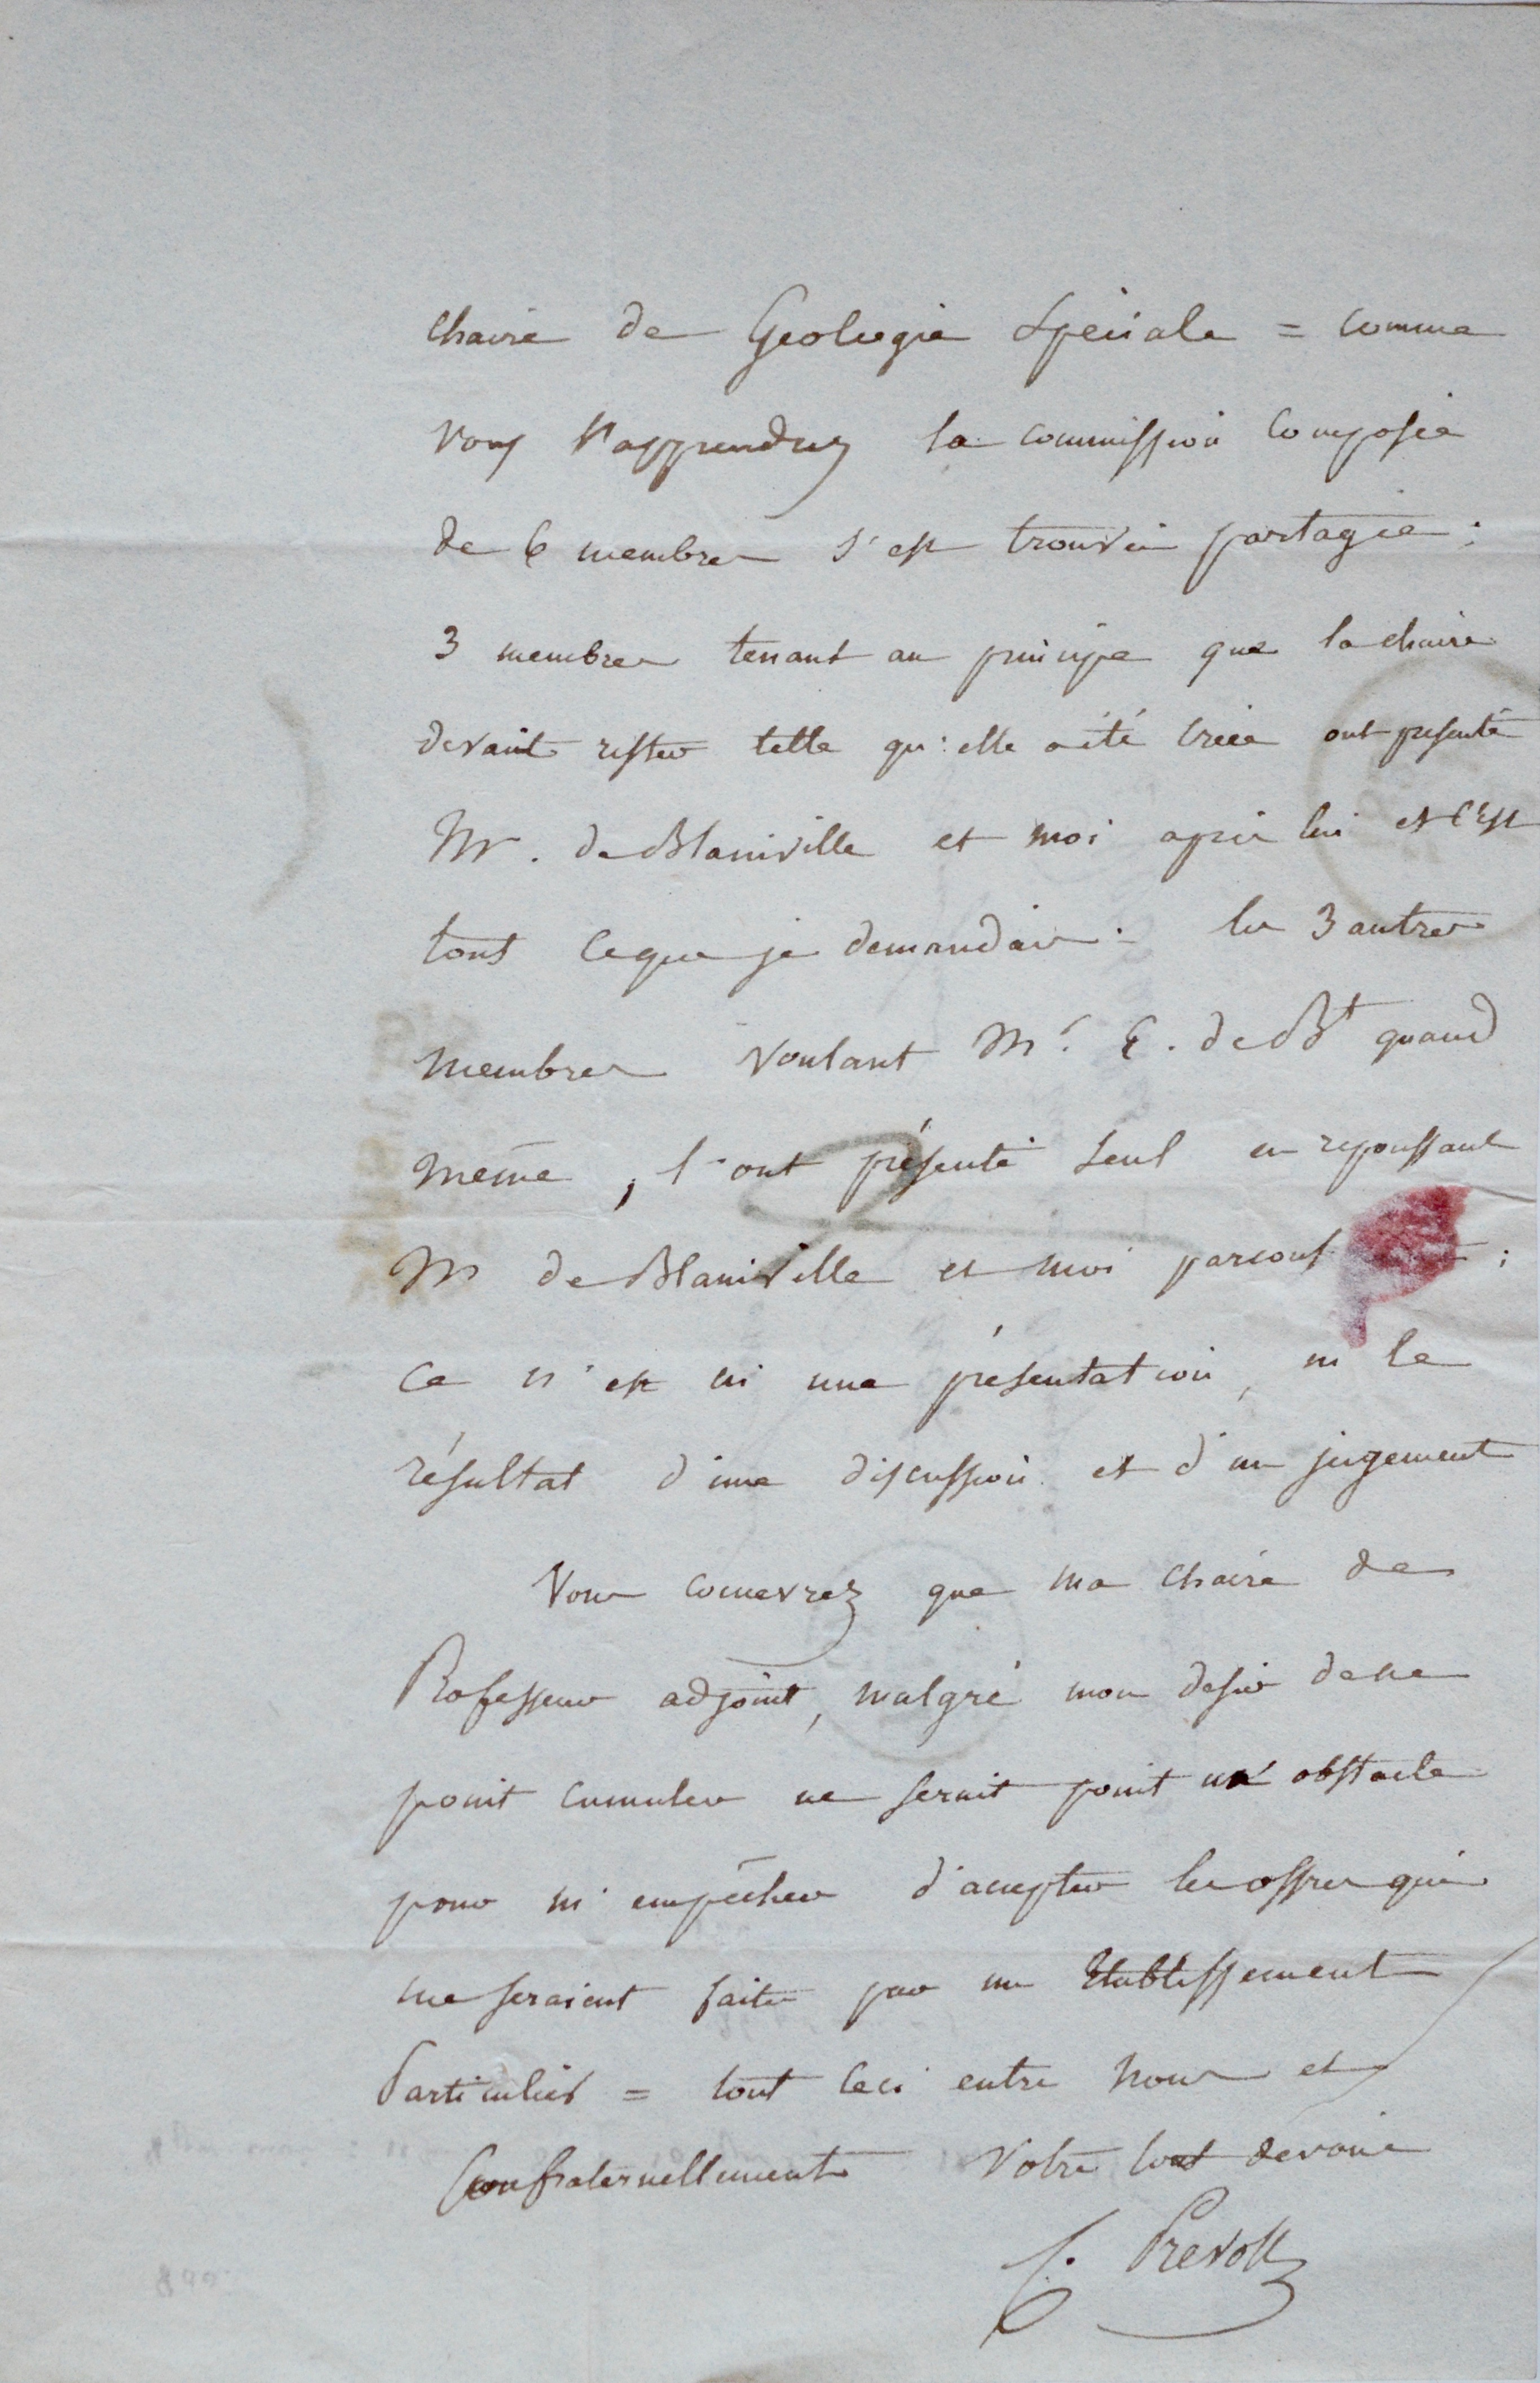 chaire de Geologie speciale = comme
vous l'apprendrez la commission composée
de 6 membres s'est trouvée partagée :
3 membres tenant au principe que la chaire
devait rester telle qu'elle a été créée ont présenté
Mr. de Blainville et moi après lui et c'est
tout ce que je demandais. les 3 autres
membres voulant Mr. E. de Bt quand
même, l'ont présenté seul en repoussant
M de Blainville et moi par conséquent ;
ce n'est ni une présentation, ni le
résultat d'une discussion et d'un jugement
Vous concevrez que ma chaire de
Professeur adjoint, malgré mon desir de ne
point cumuler ne serait point un obstacle
pour m'empêcher d'accepter les offres qui
me seraient faites par un Etablissement
Particulier = tout ceci entre nous et
Confraternellement Votre tout dévoué
C. Prevost